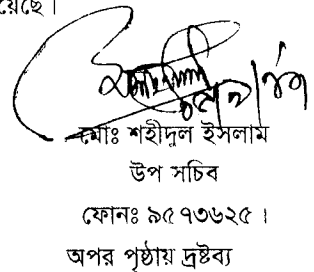 য়েছে।
মোঃ শহীদুল ইসলাম
উপ সচিব
ফোনঃ ৯৫৭৩৬২৫।
অপর পৃষ্ঠায় দ্রষ্টব্য